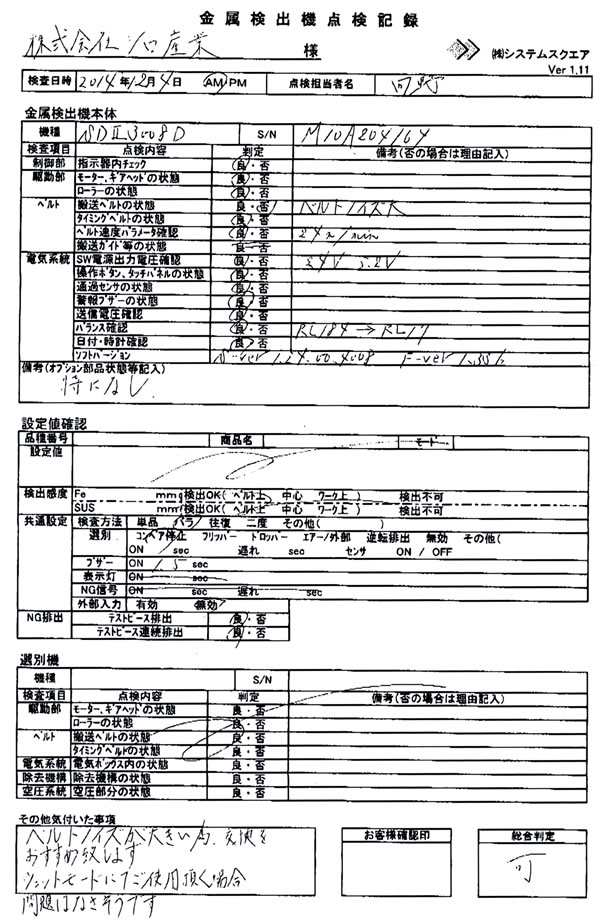 金属検出機点検記録
株式会社 産業 様
㈱システムスクエア
Ver 1.11
検査日時 2014年12月4日 AM PM 点検担当者名
金属検出機本体
機種 S/N M10A204164
検査項目 点検内容 判定 備考(否の場合は理由記入)
制御部 指示器内チェック 良・否
駆動部 モーター、ギアヘッドの状態 良・否
ローラーの状態 良・否
ベルト 搬送ベルトの状態 良・否 ベルトノイズ大
タイミングベルトの状態 良・否
ベルト速度パラメータ確認 良・否 24m/min
搬送ガイド等の状態 良・否
電気系統 SW電源出力電圧確認 良・否 24V 5.2V
操作ボタン、タッチパネルの状態 良・否
通過センサの状態 良・否
警報ブザーの状態 良・否
送信電圧確認 良・否
バランス確認 良・否 RL184→RL17
日付・時計確認 良・否
ソフトバージョン S-ver 1.24.00.4008 F-ver
備考(オプション部品状態等記入)
特になし
設定値確認
品種番号 商品名 モード
設定値
検出感度 Fe mm 検出OK( ベルト上 中心 ワーク上 ) 検出不可
SUS mm 検出OK( ベルト上 中心 ワーク上 ) 検出不可
共通設定 検査方法 単品 バラ 往復 二度 その他( )
選別 コンベア停止 フリッパー ドロッパー エアー/外部 逆転排出 無効 その他(
ON sec 遅れ sec センサ ON / OFF
ブザー ON 1.5 sec
表示灯 ON sec
NG信号 ON sec 遅れ sec
外部入力 有効 無効
NG排出 テストピース排出 良・否
テストピース連続排出 良・否
選別機
機種 S/N
検査項目 点検内容 判定 備考(否の場合は理由記入)
駆動部 モーター、ギアヘッドの状態 良・否
ローラーの状態 良・否
ベルト 搬送ベルトの状態 良・否
タイミングベルトの状態 良・否
電気系統 電気ボックス内の状態 良・否
除去機構 除去機構の状態 良・否
空圧系統 空圧部分の状態 良・否
その他気付いた事項
ベルトノイズが大きい為、交換を
おすすめ致します
ジェットモードにてご使用頂く場合
問題はなさそうです
お客様確認印
総合判定
可